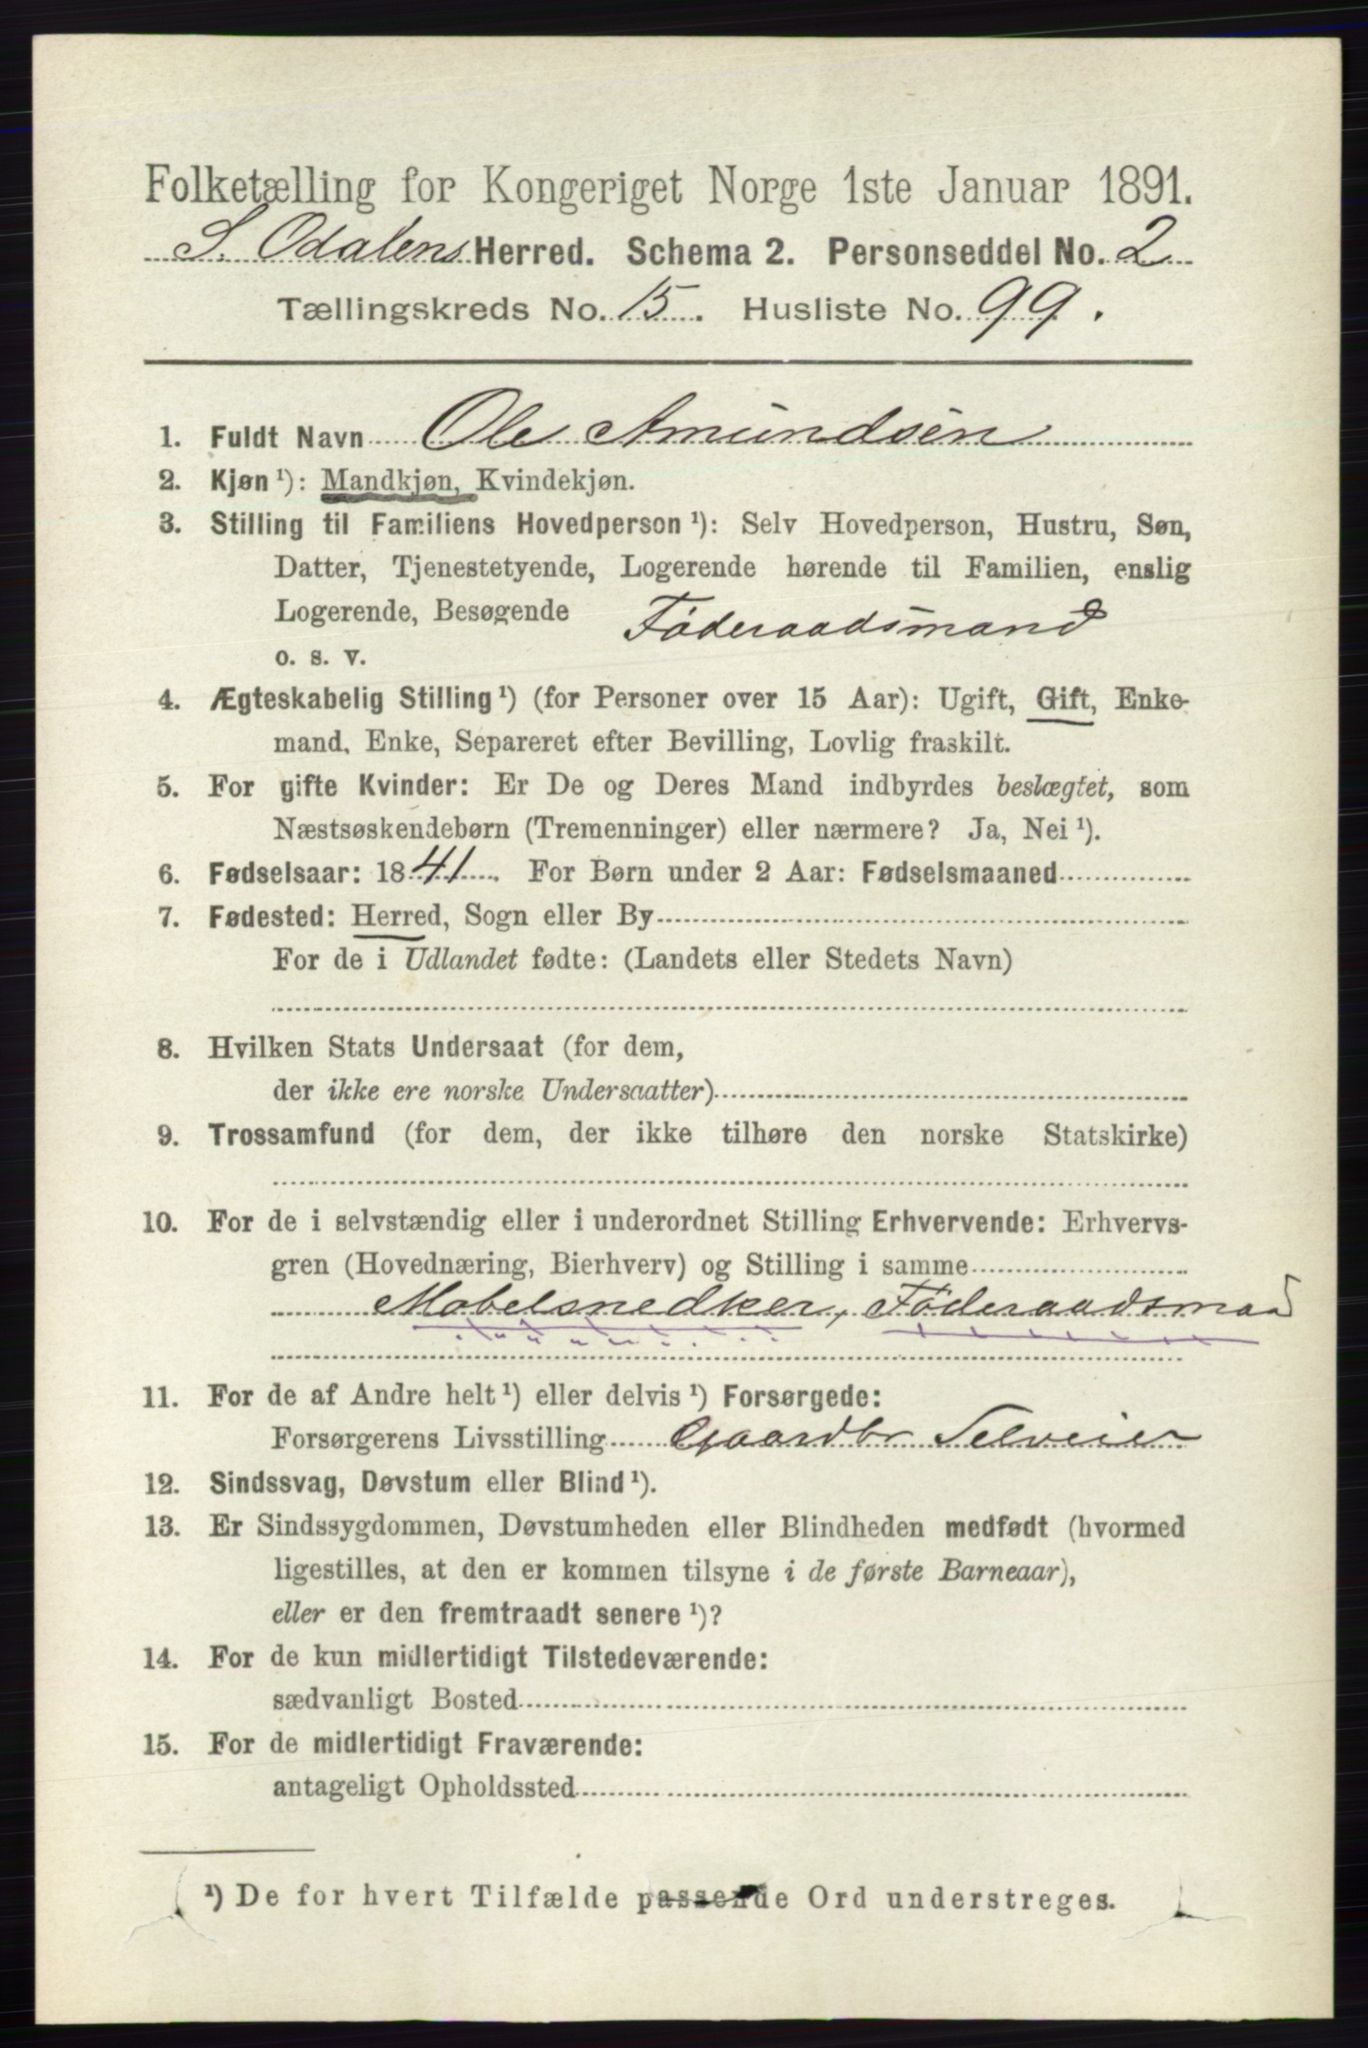 Folketælling for Kongeriget Norge 1ste Januar 1891.
S. Odalens Herred. Schema 2. Personseddel No. 2
Tællingskreds No. 15. Husliste No. 99.
1. Fuldt Navn Ole Amundsen
2. Kjøn ¹): Mandkjøn, Kvindekjøn.
3. Stilling til Familiens Hovedperson ¹): Selv Hovedperson, Hustru, Søn,
Datter, Tjenestetyende, Logerende hørende til Familien, enslig
Logerende, Besøgende Føderaadsmand
o. s. v.
4. Ægteskabelig Stilling ¹) (for Personer over 15 Aar): Ugift, Gift, Enke-
mand, Enke, Separeret efter Bevilling, Lovlig fraskilt.
5. For gifte Kvinder: Er De og Deres Mand indbyrdes beslægtet, som
Næstsøskendebørn (Tremenninger) eller nærmere? Ja, Nei ¹).
6. Fødselsaar: 1841. For Børn under 2 Aar: Fødselsmaaned
7. Fødested: Herred, Sogn eller By
For de i Udlandet fødte: (Landets eller Stedets Navn)
8. Hvilken Stats Undersaat (for dem,
der ikke ere norske Undersaatter)
9. Trossamfund (for dem, der ikke tilhøre den norske Statskirke)
10. For de i selvstændig eller i underordnet Stilling Erhvervende: Erhvervs-
gren (Hovednæring, Bierhverv) og Stilling i samme
Mobelsnedker, Føderaadsmad
11. For de af Andre helt ¹) eller delvis ¹) Forsørgede:
Forsørgerens Livsstilling Gaardbr Selveier
12. Sindssvag, Døvstum eller Blind ¹).
13. Er Sindssygdommen, Døvstumheden eller Blindheden medfødt (hvormed
ligestilles, at den er kommen tilsyne i de første Barneaar),
eller er den fremtraadt senere ¹)?
14. For de kun midlertidigt Tilstedeværende:
sædvanligt Bosted
15. For de midlertidigt Fraværende:
antageligt Opholdssted
¹) De for hvert Tilfælde passende Ord understreges.